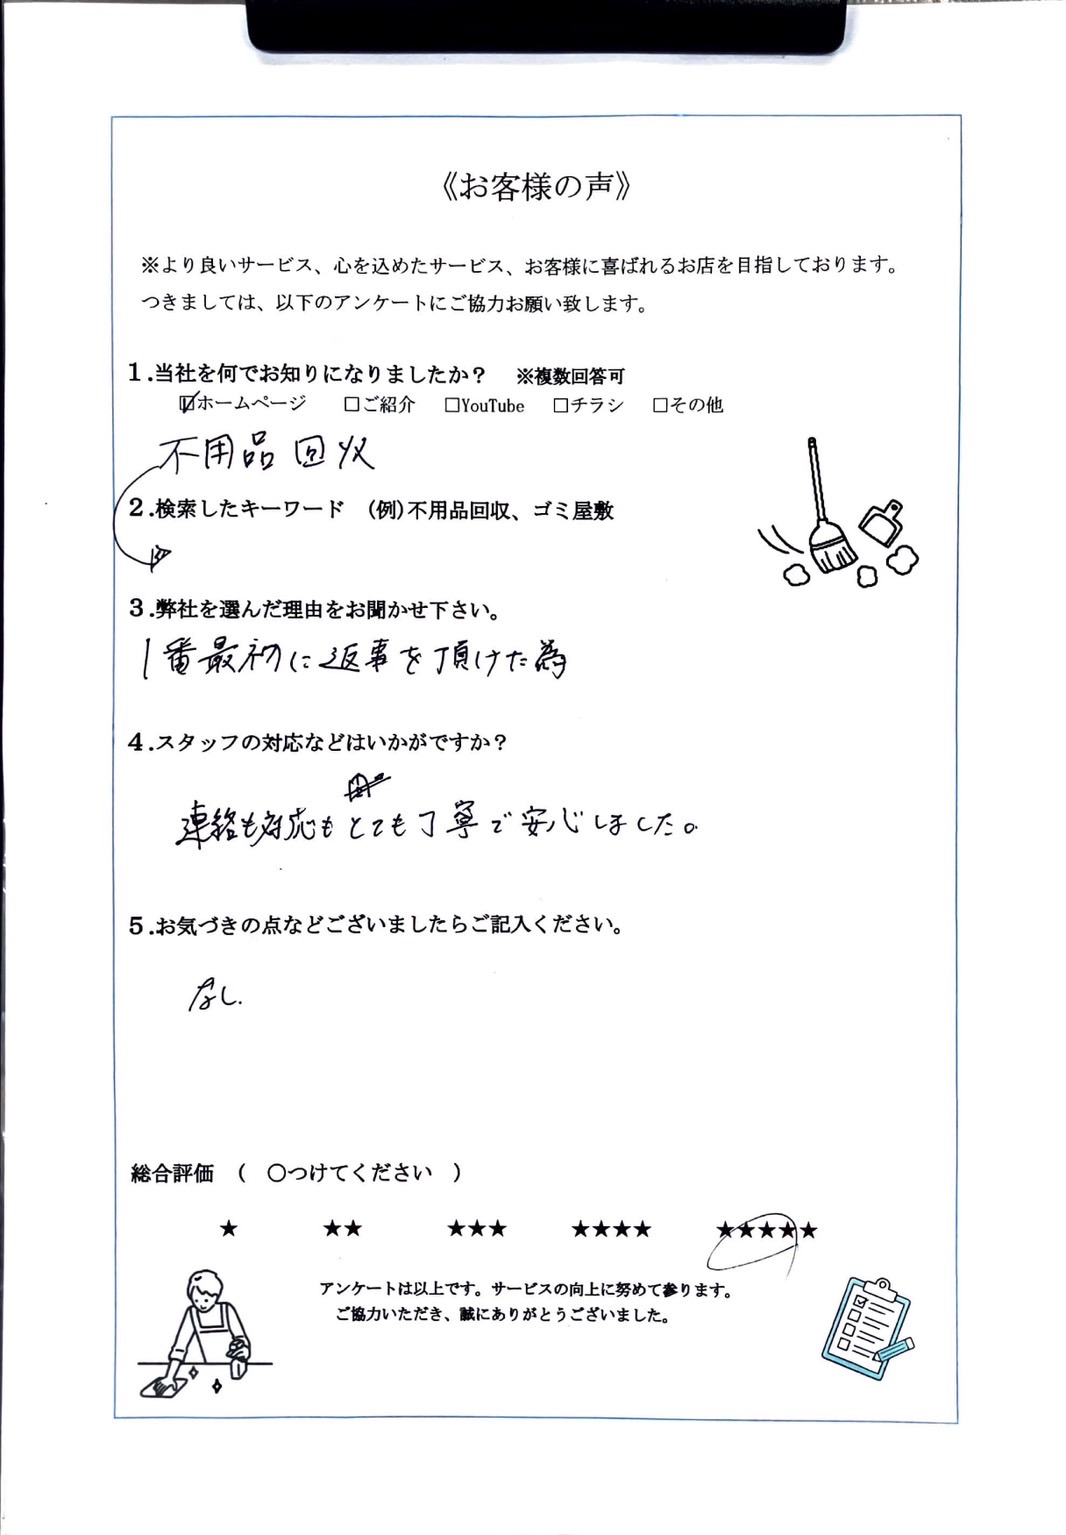 《お客様の声》
※より良いサービス、心を込めたサービス、お客様に喜ばれるお店を目指しております。
つきましては、以下のアンケートにご協力お願い致します。
1.当社を何でお知りになりましたか？ ※複数回答可
☑ホームページ □ご紹介 □YouTube □チラシ □その他
不用品回収
2.検索したキーワード (例)不用品回収、ゴミ屋敷
3.弊社を選んだ理由をお聞かせ下さい。
1番最初に返事を頂けた為
4.スタッフの対応などはいかがですか？
連絡も対応もとても丁寧で安心しました。
5.お気づきの点などございましたらご記入ください。
なし.
総合評価 ( 〇つけてください )
★ ★★ ★★★ ★★★★ ★★★★★
アンケートは以上です。サービスの向上に努めて参ります。
ご協力いただき、誠にありがとうございました。